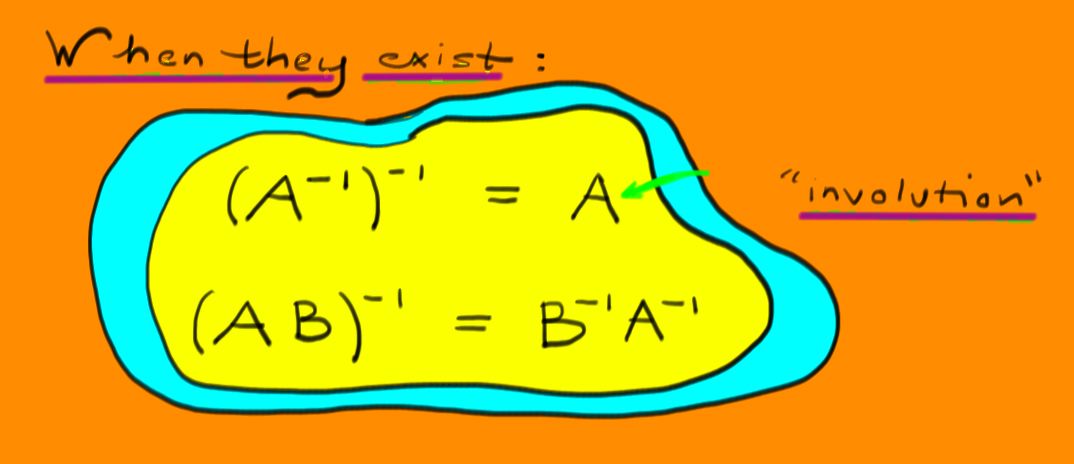 When they exist :
(A⁻¹)⁻¹ = A
"involution"
(AB)⁻¹ = B⁻¹A⁻¹